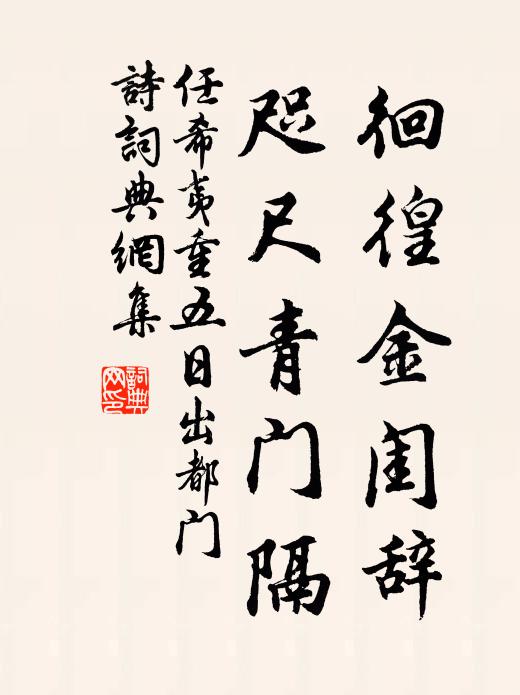 徊徨金闺辞
咫尺青门隔
任希夷重五日出都门
詩詞典網集
詞典网印